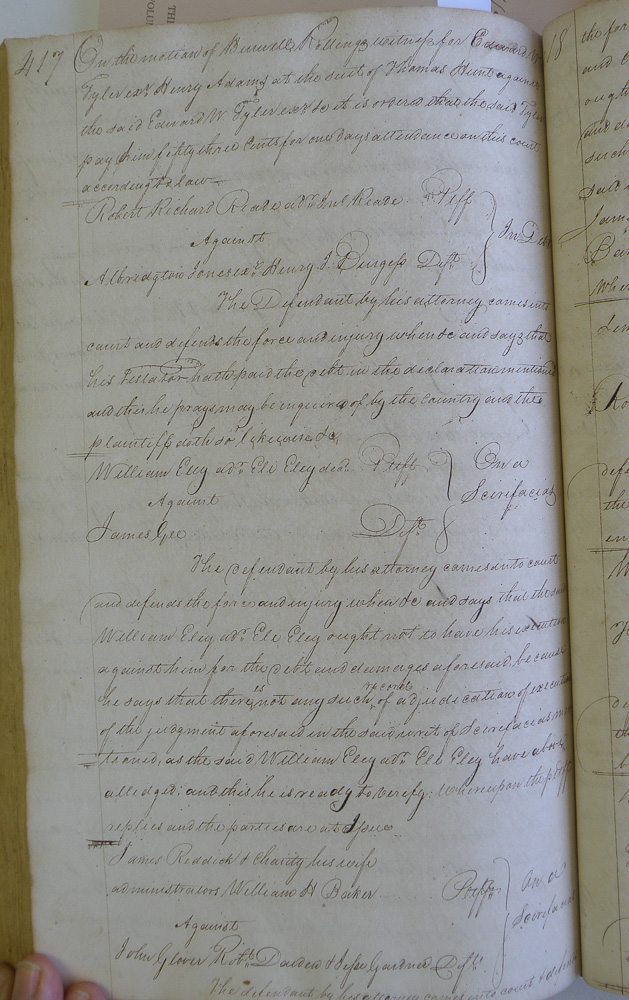 417 On the motion of Burwell Rollings witness for Edward W
Tyler exr Henry Adams at the suit of Thomas Hunt against
the said Edward W Tyler exr &c it is ordered that the said Tyler
pay him fifty three Cents for one days attendance on this court
according to law
Robert Richard Reade adr Reade Pltff
In Debt
Against
Albredgton Jones exr Henry J. Burgess Deft
The Defendant by his attorney comes into
court and defends the force and injury when &c and says that
his Testator hath paid the debt in the declaration mentioned
and this he prays may be inquired of by the country and the
plaintiff doth so likewise &c
William Eley adr Ele Eley decd Pltff
On a
Scirefacias
Against
James Gee Deft
The defendant by his attorney comes into court
and defends the force and injury when &c and says that the said
William Eley adr Ele Eley ought not to have his execution
against him for the debt and damages aforesaid, because
he says that there is not any such record of adjudication of execution
of the judgment aforesaid in the said writ of Scirefacias men
tioned, as the said William Eley adr Ele Eley have above
alledged; and this he is ready to verify: whereupon the pltff
replies and the parties are at Issue
James Reddick & Charity his wife
administrators William H Baker Pltffs
On a
Scirefacias
Against
John Glover Robt Darden & Jesse Gardner Defts
The defendant by his attorney comes into court & defends
18
the for
and
ought
and d
such
said
Jam
Ba
whe
defe
the
en